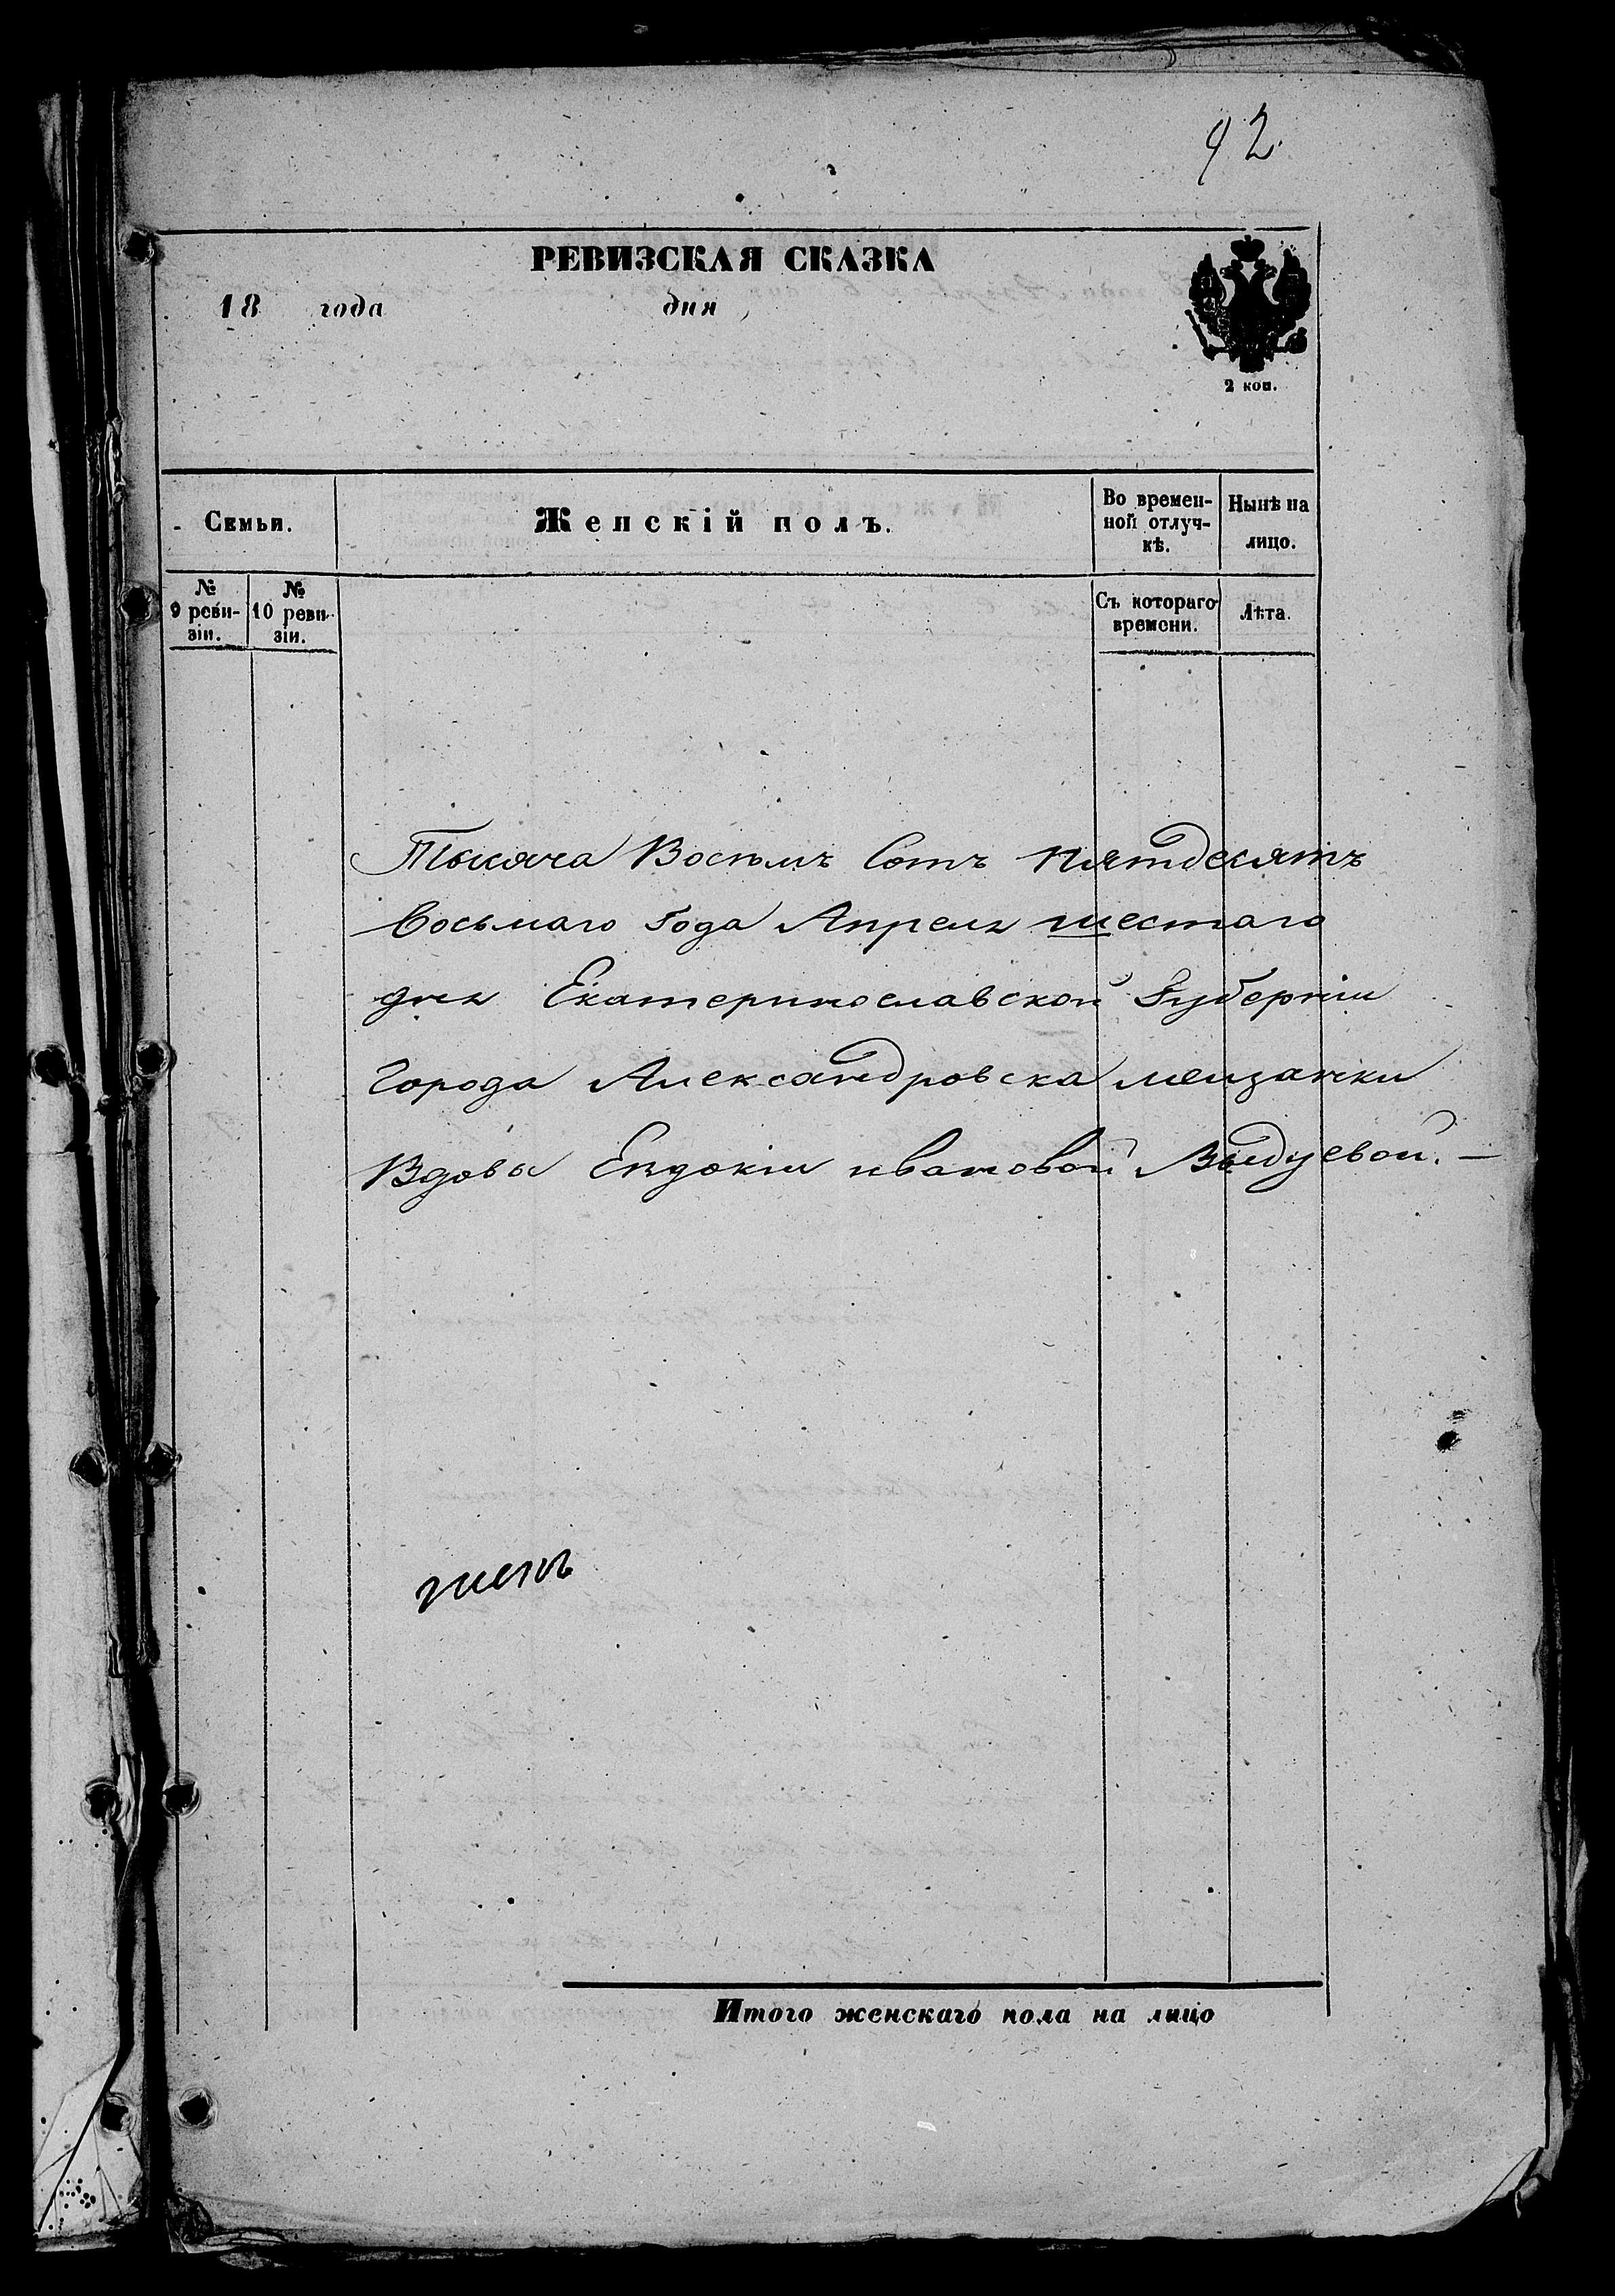 92
РЕВИЗСКАЯ СКАЗКА
18 года дня
2 коп.
Семьи.
Женскій полъ.
Во времен-
ной отлуч-
кѣ.
Нынѣ на
лицо.
№
9 реви-
зіи.
№
10 реви-
зіи.
Съ котораго
времени.
Лѣта.
Тысяча Восемъ Сотъ Пятдесятъ
Восьмаго Года Апреля шестаго
дня Екатеринославской Губерніи
Города Александровска мещанки
Вдовы Евдокіи Ивановой
Итого женскаго пола на лицо